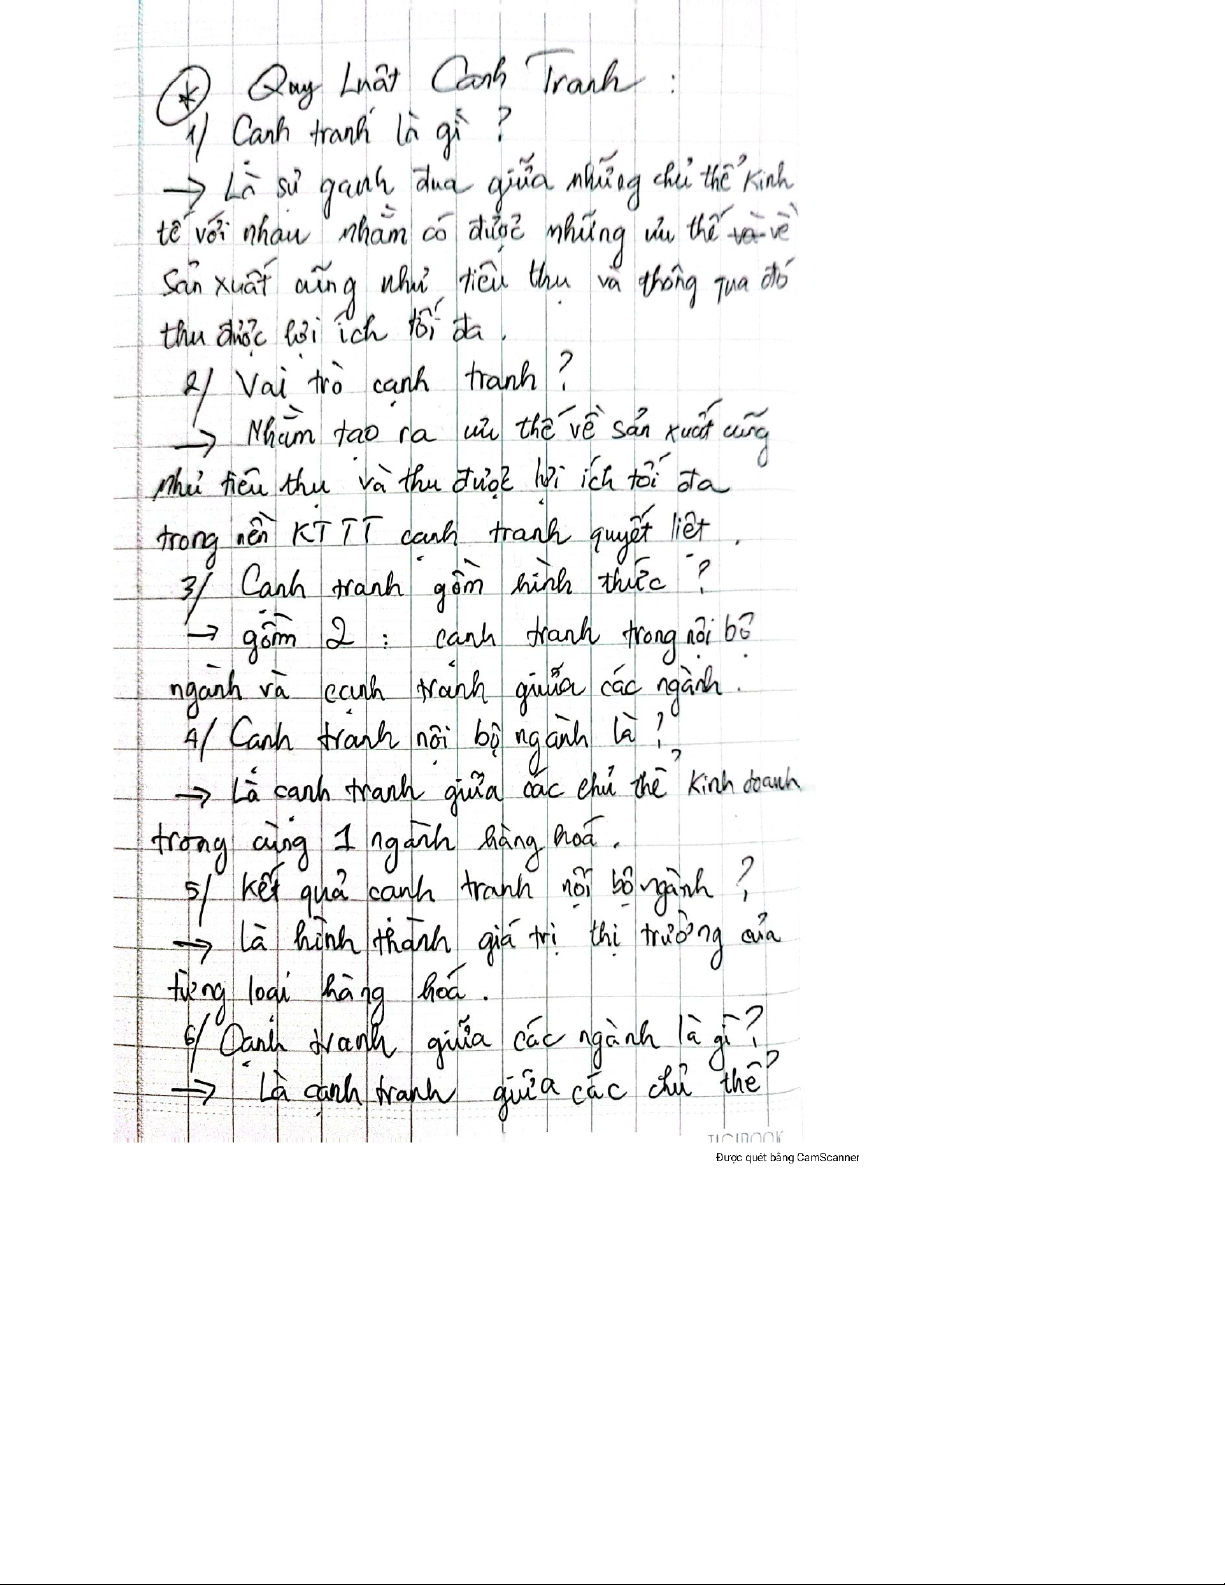 * Quy Luật Cạnh Tranh :
1/ Cạnh tranh là gì ?
→ Là sự ganh đua giữa những chủ thể kinh
tế với nhau nhằm có được những ưu thế và về
sản xuất cũng như tiêu thụ và thông qua đó
thu được lợi ích tối đa.
2/ Vai trò cạnh tranh ?
→ Nhằm tạo ra ưu thế về sản xuất cũng
như tiêu thụ và thu được lợi ích tối đa
trong nền KTTT cạnh tranh quyết liệt.
3/ Cạnh tranh gồm hình thức ?
→ gồm 2 : cạnh tranh trong nội bộ
ngành và cạnh tranh giữa các ngành.
4/ Cạnh tranh nội bộ ngành là ?
→ Là cạnh tranh giữa các chủ thể kinh doanh
trong cùng 1 ngành hàng hoá.
5/ Kết quả cạnh tranh nội bộ ngành ?
→ Là hình thành giá trị thị trường của
từng loại hàng hoá.
6/ Cạnh tranh giữa các ngành là gì ?
→ Là cạnh tranh giữa các chủ thể
Được quét bằng CamScanner